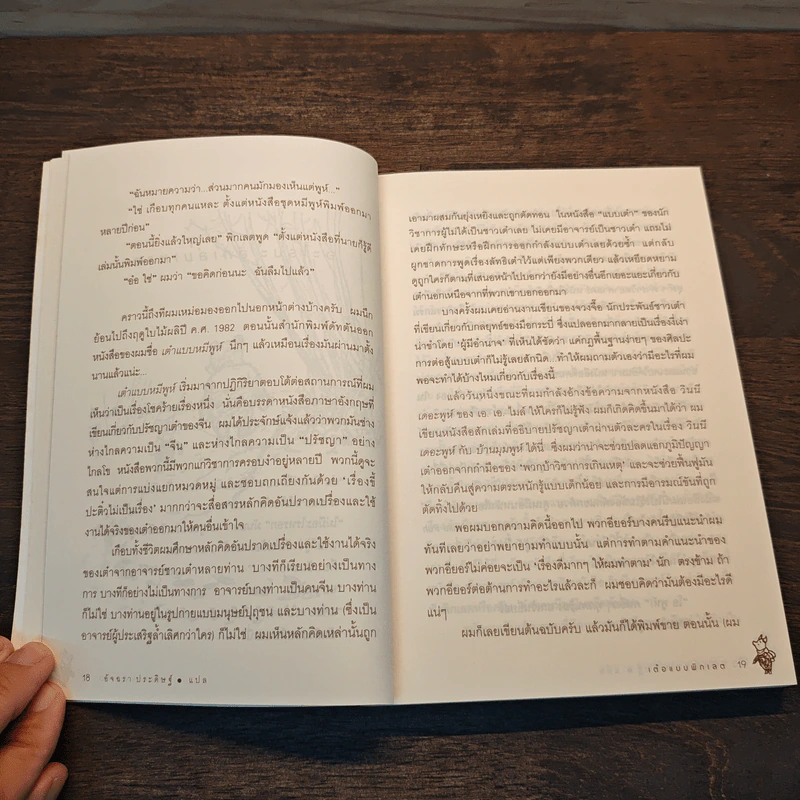 "ฉันหมายความว่า...ส่วนมากคนมักมองเห็นแต่พูห์..."
"ใช่ เกือบทุกคนแหละ ตั้งแต่หนังสือชุดหมีพูห์พิมพ์ออกมา
หลายปีก่อน"
"ตอนนี้ยิ่งแล้วใหญ่เลย" พิกเลตพูด "ตั้งแต่หนังสือที่นายก็รู้ดี
เล่มนั้นพิมพ์ออกมา"
"อ๋อ ใช่" ผมว่า "ขอคิดก่อนนะ ฉันลืมไปแล้ว"
คราวนี้ถึงทีผมเหม่อมองออกไปนอกหน้าต่างบ้างครับ ผมนึก
ย้อนไปถึงฤดูใบไม้ผลิปี ค.ศ. 1982 ตอนนั้นสำนักพิมพ์ดัทตันออก
หนังสือของผมชื่อ เต๋าแบบหมีพูห์ นึกๆ แล้วเหมือนเรื่องมันผ่านมาตั้ง
นานแล้วแน่ะ...
เต๋าแบบหมีพูห์ เริ่มมาจากปฏิกิริยาตอบโต้ต่อสถานการณ์ที่ผม
เห็นว่าเป็นเรื่องโชคร้ายเรื่องหนึ่ง นั่นคือบรรดาหนังสือภาษาอังกฤษที่
เขียนเกี่ยวกับปรัชญาเต๋าของจีน ผมได้ประจักษ์แจ้งแล้วว่าพวกมันช่าง
ห่างไกลความเป็น "จีน" และห่างไกลความเป็น "ปรัชญา" อย่าง
ไกลโข หนังสือพวกนี้มีพวกแก่วิชาการครอบงำอยู่หลายปี พวกนี้ดูจะ
สนใจแต่การแบ่งแยกหมวดหมู่ และชอบถกเถียงกันด้วย 'เรื่องขี้
ปะติ๋วไม่เป็นเรื่อง' มากกว่าจะสื่อสารหลักคิดอันปราดเปรื่องและใช้
งานได้จริงของเต๋าออกมาให้คนอื่นเข้าใจ
เกือบทั้งชีวิตผมศึกษาหลักคิดอันปราดเปรื่องและใช้งานได้จริง
ของเต๋าจากอาจารย์ชาวเต๋าหลายท่าน บางทีก็เรียนอย่างเป็นทาง
การ บางทีก็อย่างไม่เป็นทางการ อาจารย์บางท่านเป็นคนจีน บางท่าน
ก็ไม่ใช่ บางท่านอยู่ในรูปกายแบบมนุษย์ปุถุชน และบางท่าน (ซึ่งเป็น
อาจารย์ผู้ประเสริฐล้ำเลิศกว่าใคร) ก็ไม่ใช่ ผมเห็นหลักคิดเหล่านั้นถูก
18 อัจฉรา ประดิษฐ์ ● แปล
เอามาผสมกันยุ่งเหยิงและถูกตัดทอน ในหนังสือ "แบบเต๋า" ของนัก
วิชาการผู้ไม่ได้เป็นชาวเต๋าเลย ไม่เคยมีอาจารย์เป็นชาวเต๋า แถมไม่
เคยฝึกทักษะหรือฝึกการออกกำลังแบบเต๋าเลยด้วยซ้ำ แต่กลับ
ผูกขาดการพูดเรื่องลัทธิเต๋าไว้แต่เพียงพวกเดียว แล้วเหยียดหยาม
ดูถูกใครก็ตามที่เสนอหน้าไปบอกว่ายังมีอย่างอื่นอีกเยอะแยะเกี่ยวกับ
เต๋านอกเหนือจากที่พวกเขาบอกออกมา
บางครั้งผมเคยอ่านงานเขียนของจวงจื๊อ นักประพันธ์ชาวเต๋า
ที่เขียนเกี่ยวกับกลยุทธ์ของมือกระบี่ ซึ่งแปลออกมากลายเป็นเรื่องงี่เง่า
น่าขำโดย 'ผู้มีอำนาจ' ที่เห็นได้ชัดว่า แค่กฎพื้นฐานง่ายๆ ของศิลปะ
การต่อสู้แบบเต๋าก็ไม่รู้เลยสักนิด.. ทำให้ผมถามตัวเองว่ามีอะไรที่ผม
พอจะทำได้บ้างไหมเกี่ยวกับเรื่องนี้
แล้ววันหนึ่งขณะที่ผมกำลังอ้างข้อความจากหนังสือ วินนี่
เดอะพูห์ ของ เอ. เอ. ไมล์ ให้ใครก็ไม่รู้ฟัง ผมก็เกิดคิดขึ้นมาได้ว่า ผม
เขียนหนังสือสักเล่มที่อธิบายปรัชญาเต๋าผ่านตัวละครในเรื่อง วินนี่
เดอะพูห์ กับ บ้านมุมพูห์ ได้นี่ ซึ่งผมว่าน่าจะช่วยปลดแอกภูมิปัญญา
เต๋าออกจากกำมือของ 'พวกบ้าวิชาการเกินเหตุ' และจะช่วยฟื้นฟูมัน
ให้กลับคืนสู่ความตระหนักรู้แบบเด็กน้อย และการมีอารมณ์ขันที่ถูก
ตัดทิ้งไปด้วย
พอผมบอกความคิดนี้ออกไป พวกอียอร์บางคนรีบแนะนำผม
ทันทีเลยว่าอย่าพยายามทำแบบนั้น แต่การทำตามคำแนะนำของ
พวกอียอร์ไม่ค่อยจะเป็น 'เรื่องดีมากๆ ให้ผมทำตาม' นัก ตรงข้าม ถ้า
พวกอียอร์ต่อต้านการทำอะไรแล้วละก็ ผมชอบคิดว่ามันต้องมีอะไรดี
แน่ๆ
ผมก็เลยเขียนต้นฉบับครับ แล้วมันก็ได้พิมพ์ขาย ตอนนั้น (ผม
เต๋อแบบพิกเลต 19